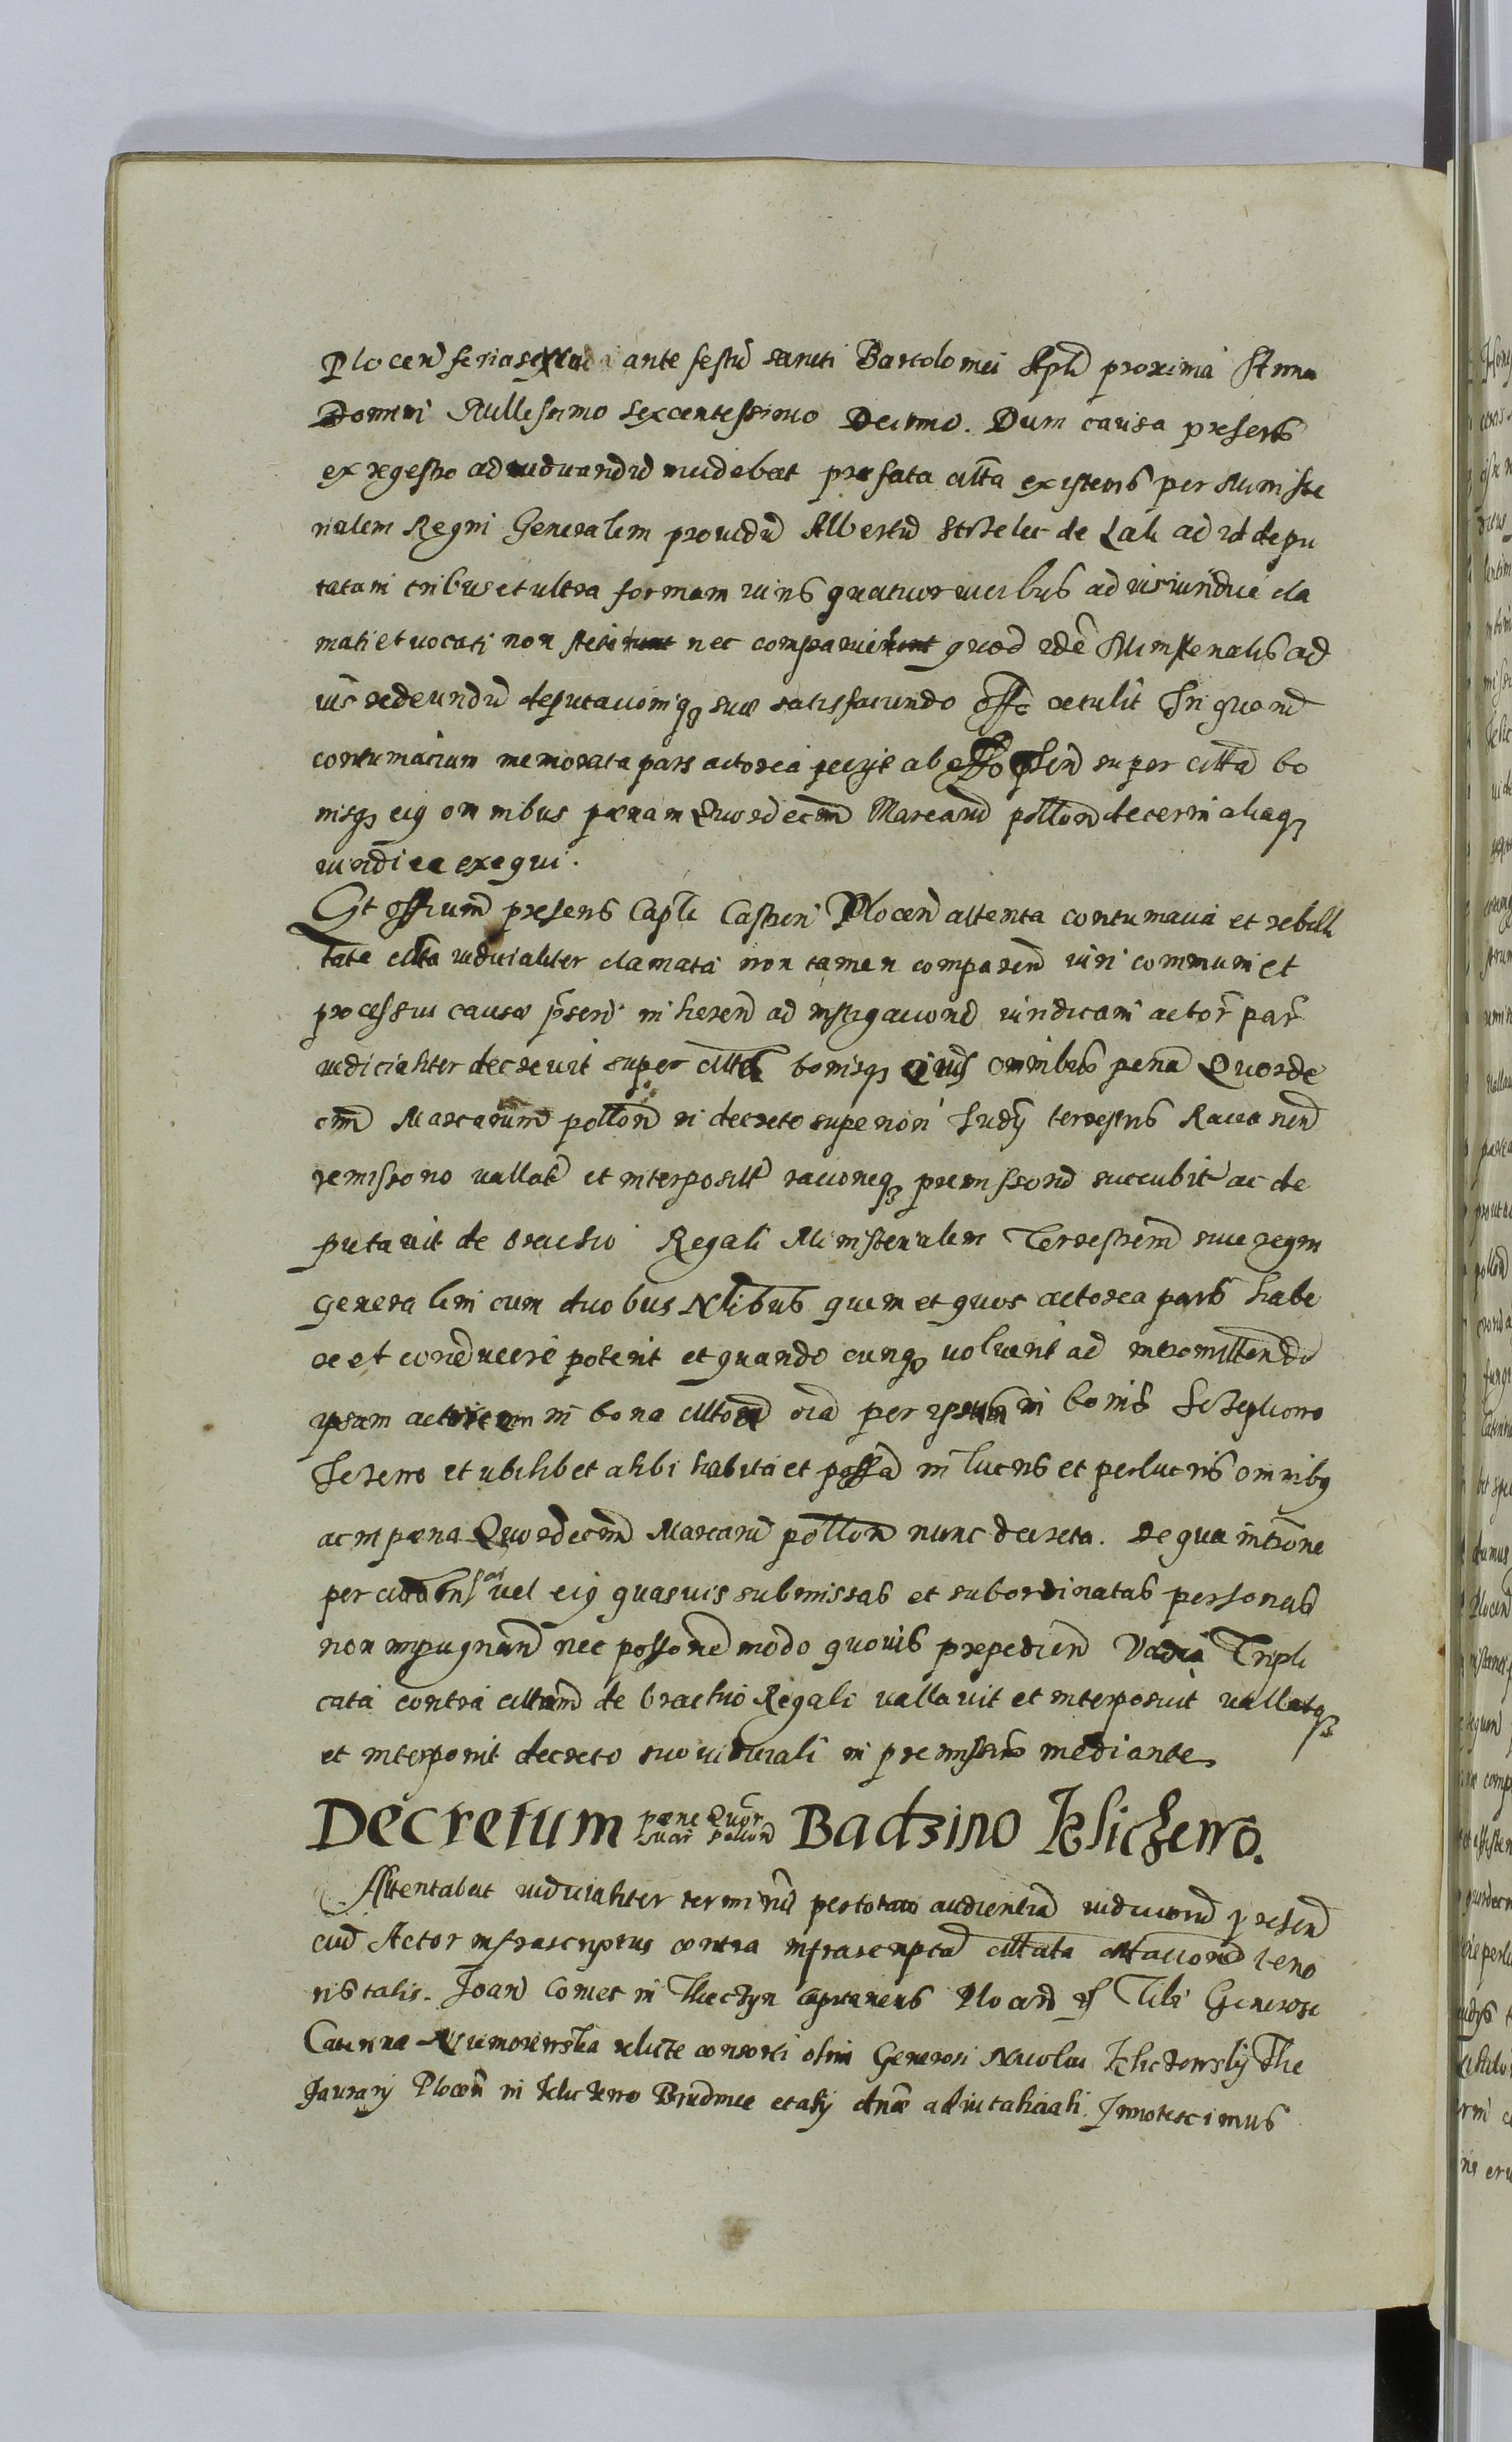 Plocen feria sexta ante festu sancti Bartolomei Apli proxima Anno
Domini Millesimo sexcentessimo Decimo. Dum causa presens
ex regestro ad iudicandu incidebat prefata citta existens per Ministe
rialem Regni Generalem prouidu Albertu Strzelec de Lak ad id depu
tatam tribus et ultra formam iuris quatuor vicibus ad ius iuridice cla
mati et vocati non stetit nec comparuit quod ide Ministerialis ad
ius redeundu deputacioniq sue satisfaciendo offo retulit In quam
contumaciam memorata pars actorea petijt ab offo psen super citta bo
nisq eiq omnibus pænam Quordecim Marcaru pollon decerni aliaq
iuridice exequi.
Et offium presens Capli Castren Plocen attenta contumacia et rebelli
tate citta iudicialiter clamata non tamen comparen iuri communi et
processui causæ pseri inheren ad instigacione iuridicam actor par
iudicialiter decreuit super citta bonisq eius omnibus pena Quorde
cim Marcarum pollon in decreto superiori Judij terrestris
remissiono vallat et interposit racioneq premissoru succubit ac de
putauit de brachio Regali Ministerialem Terrestrem siue regni
Generalem cum duobus Nlibus quem et quos actorea pars habe
re et conducere poterit et quandocunq voluerit ad intromittendu
ipsam actorem in bona cittoru oia per ipsam in bonis
et ubilibet alibi habita et possa in lucris et perlucris omnibq
ac in pæna Quordecim Marcaru pollon nunc decreta. De qua introne
per vel eiq quasuis submissas et subordinatas personas
non impugnan nec possone modo quouis prepedien Vadia Tripli
cata contra cittam de brachio Regali vallauit et interposuit vallatq
et interponit decreto suo iudiciali in premissis mediante
Decretum pæne Quor Mar Pollon Badzino Klichero.
Attentabat iudicialiter terminu per totam audientia iudicioru presen
ciu Actor infrascriptus contra infrascripta cittata cittacione teno
ris talis. Joan Comes in Theczyn Capitaneus Plocen rs Tibi Generose
Caterinæ relicte consorti olim Generosi Nicolai The
saurarij Plocen in Brudnice et alij dnæ aduitaliciali Innotescimus